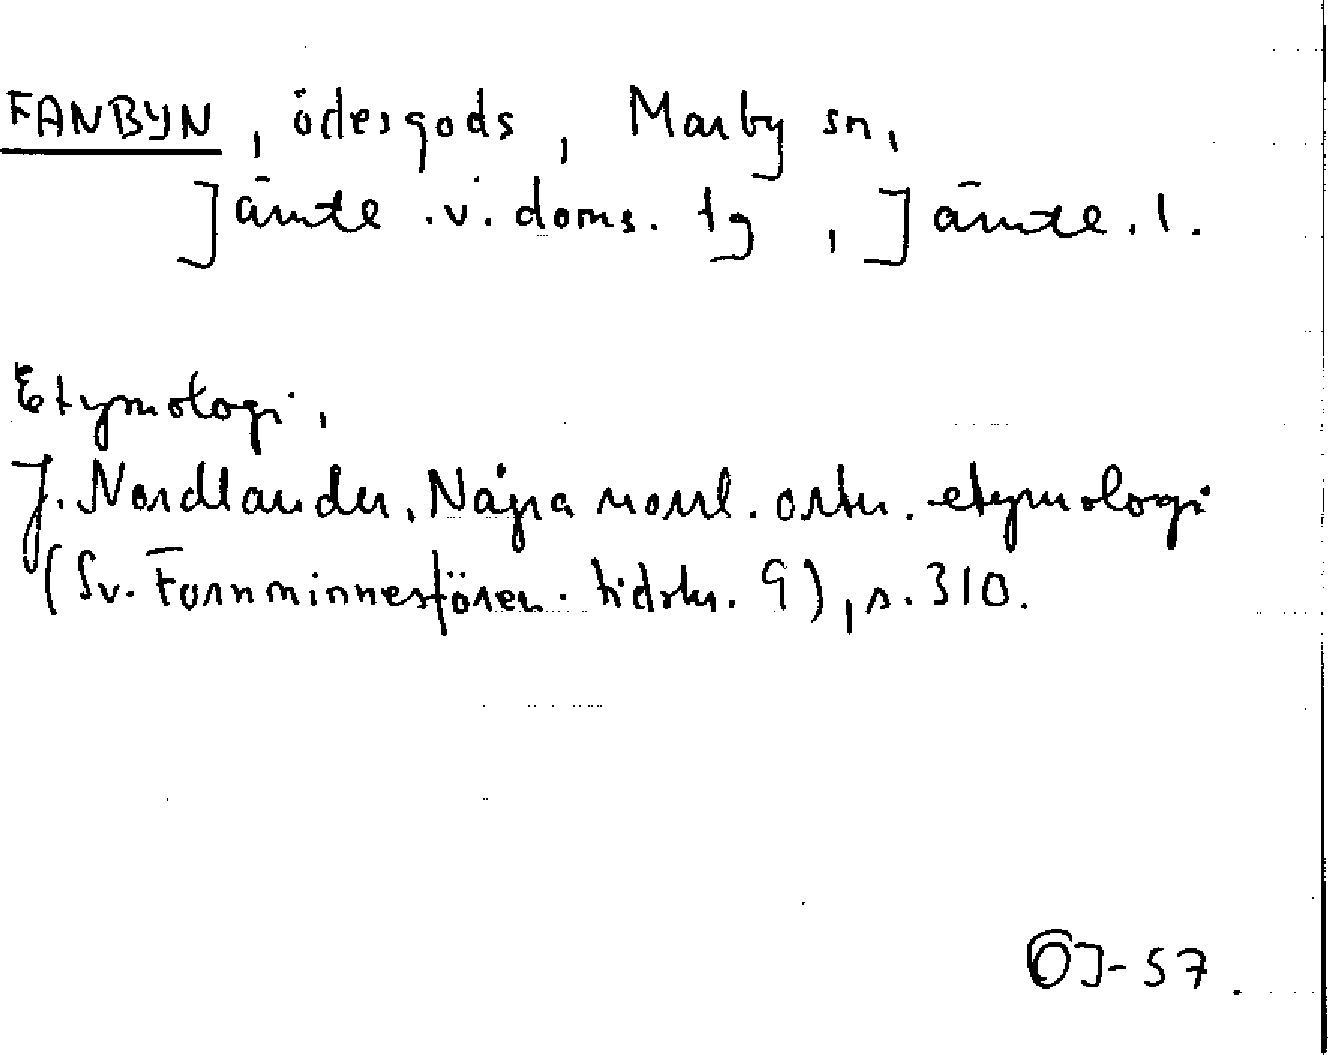 FANBYN, ödesgods, Marby sn,
Jämtl. v. doms. tg, Jämtl. l.
Etymologi,
J. Nordlander, Några norrl. ortn. etymologi
(Sv. Fornminnesfören. tidskr. 9), s. 310.
ÖJ-57.